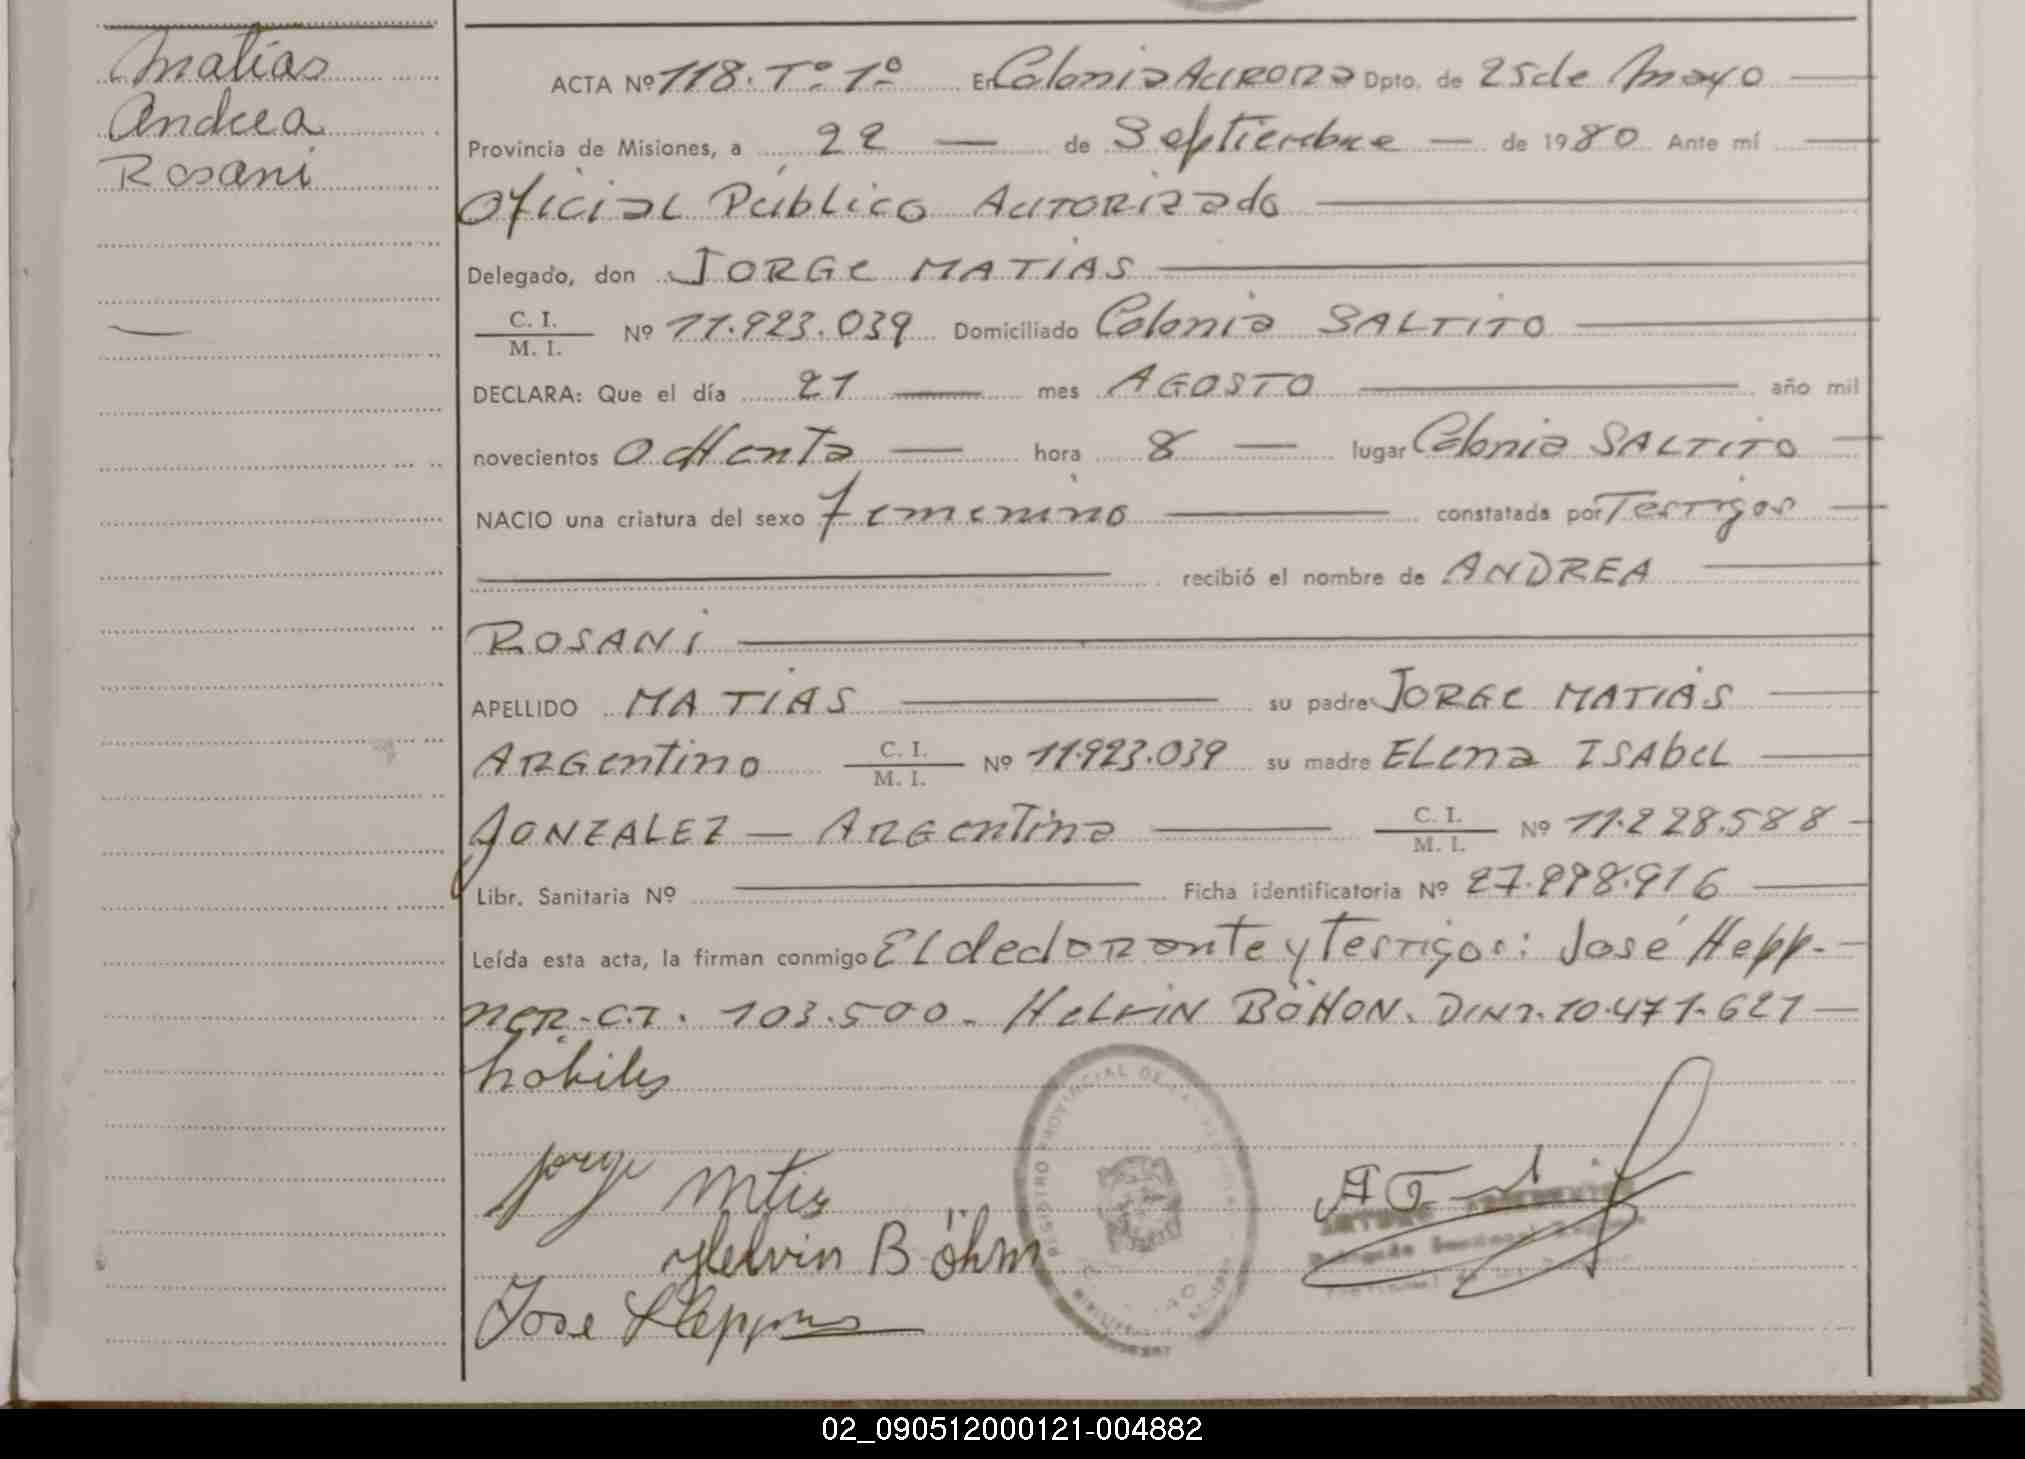 Matías
Andrea
Rosani
ACTA Nº 118. Tº 1º En Colonia Aurora Dpto. de 25 de Mayo
Provincia de Misiones, a 22 de Septiembre de 1980 Ante mí
Oficial Público Autorizado
Delegado, don JORGE MATIAS
C. I.
M. I. Nº 11.923.039 Domiciliado Colonia SALTITO
DECLARA: Que el día 21 mes AGOSTO año mil
novecientos ochenta hora 8 lugar Colonia SALTITO
NACIO una criatura del sexo femenino constatada por Testigos
recibió el nombre de ANDREA
ROSANI
APELLIDO MATIAS su padre JORGE MATIAS
ARGentino C. I. M. I. Nº 11.923.039 su madre ELena ISAbeL
GONZALEZ — ARGentina C. I. M. I. Nº 11.228.588
Libr. Sanitaria Nº Ficha identificatoria Nº 27.998.916
Leída esta acta, la firman conmigo EL declarante y Testigos: José Hepp-
ner-C.I. 103.500. HELVIN BÖHON. DNI. 10.471.621
hábiles
Jorge Mtis
Helvin Böhm
Jose Heppner
REGISTRO PROVINCIAL DE LAS
02_090512000121-004882